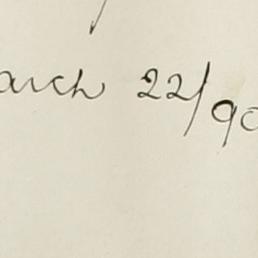 arch 22/90